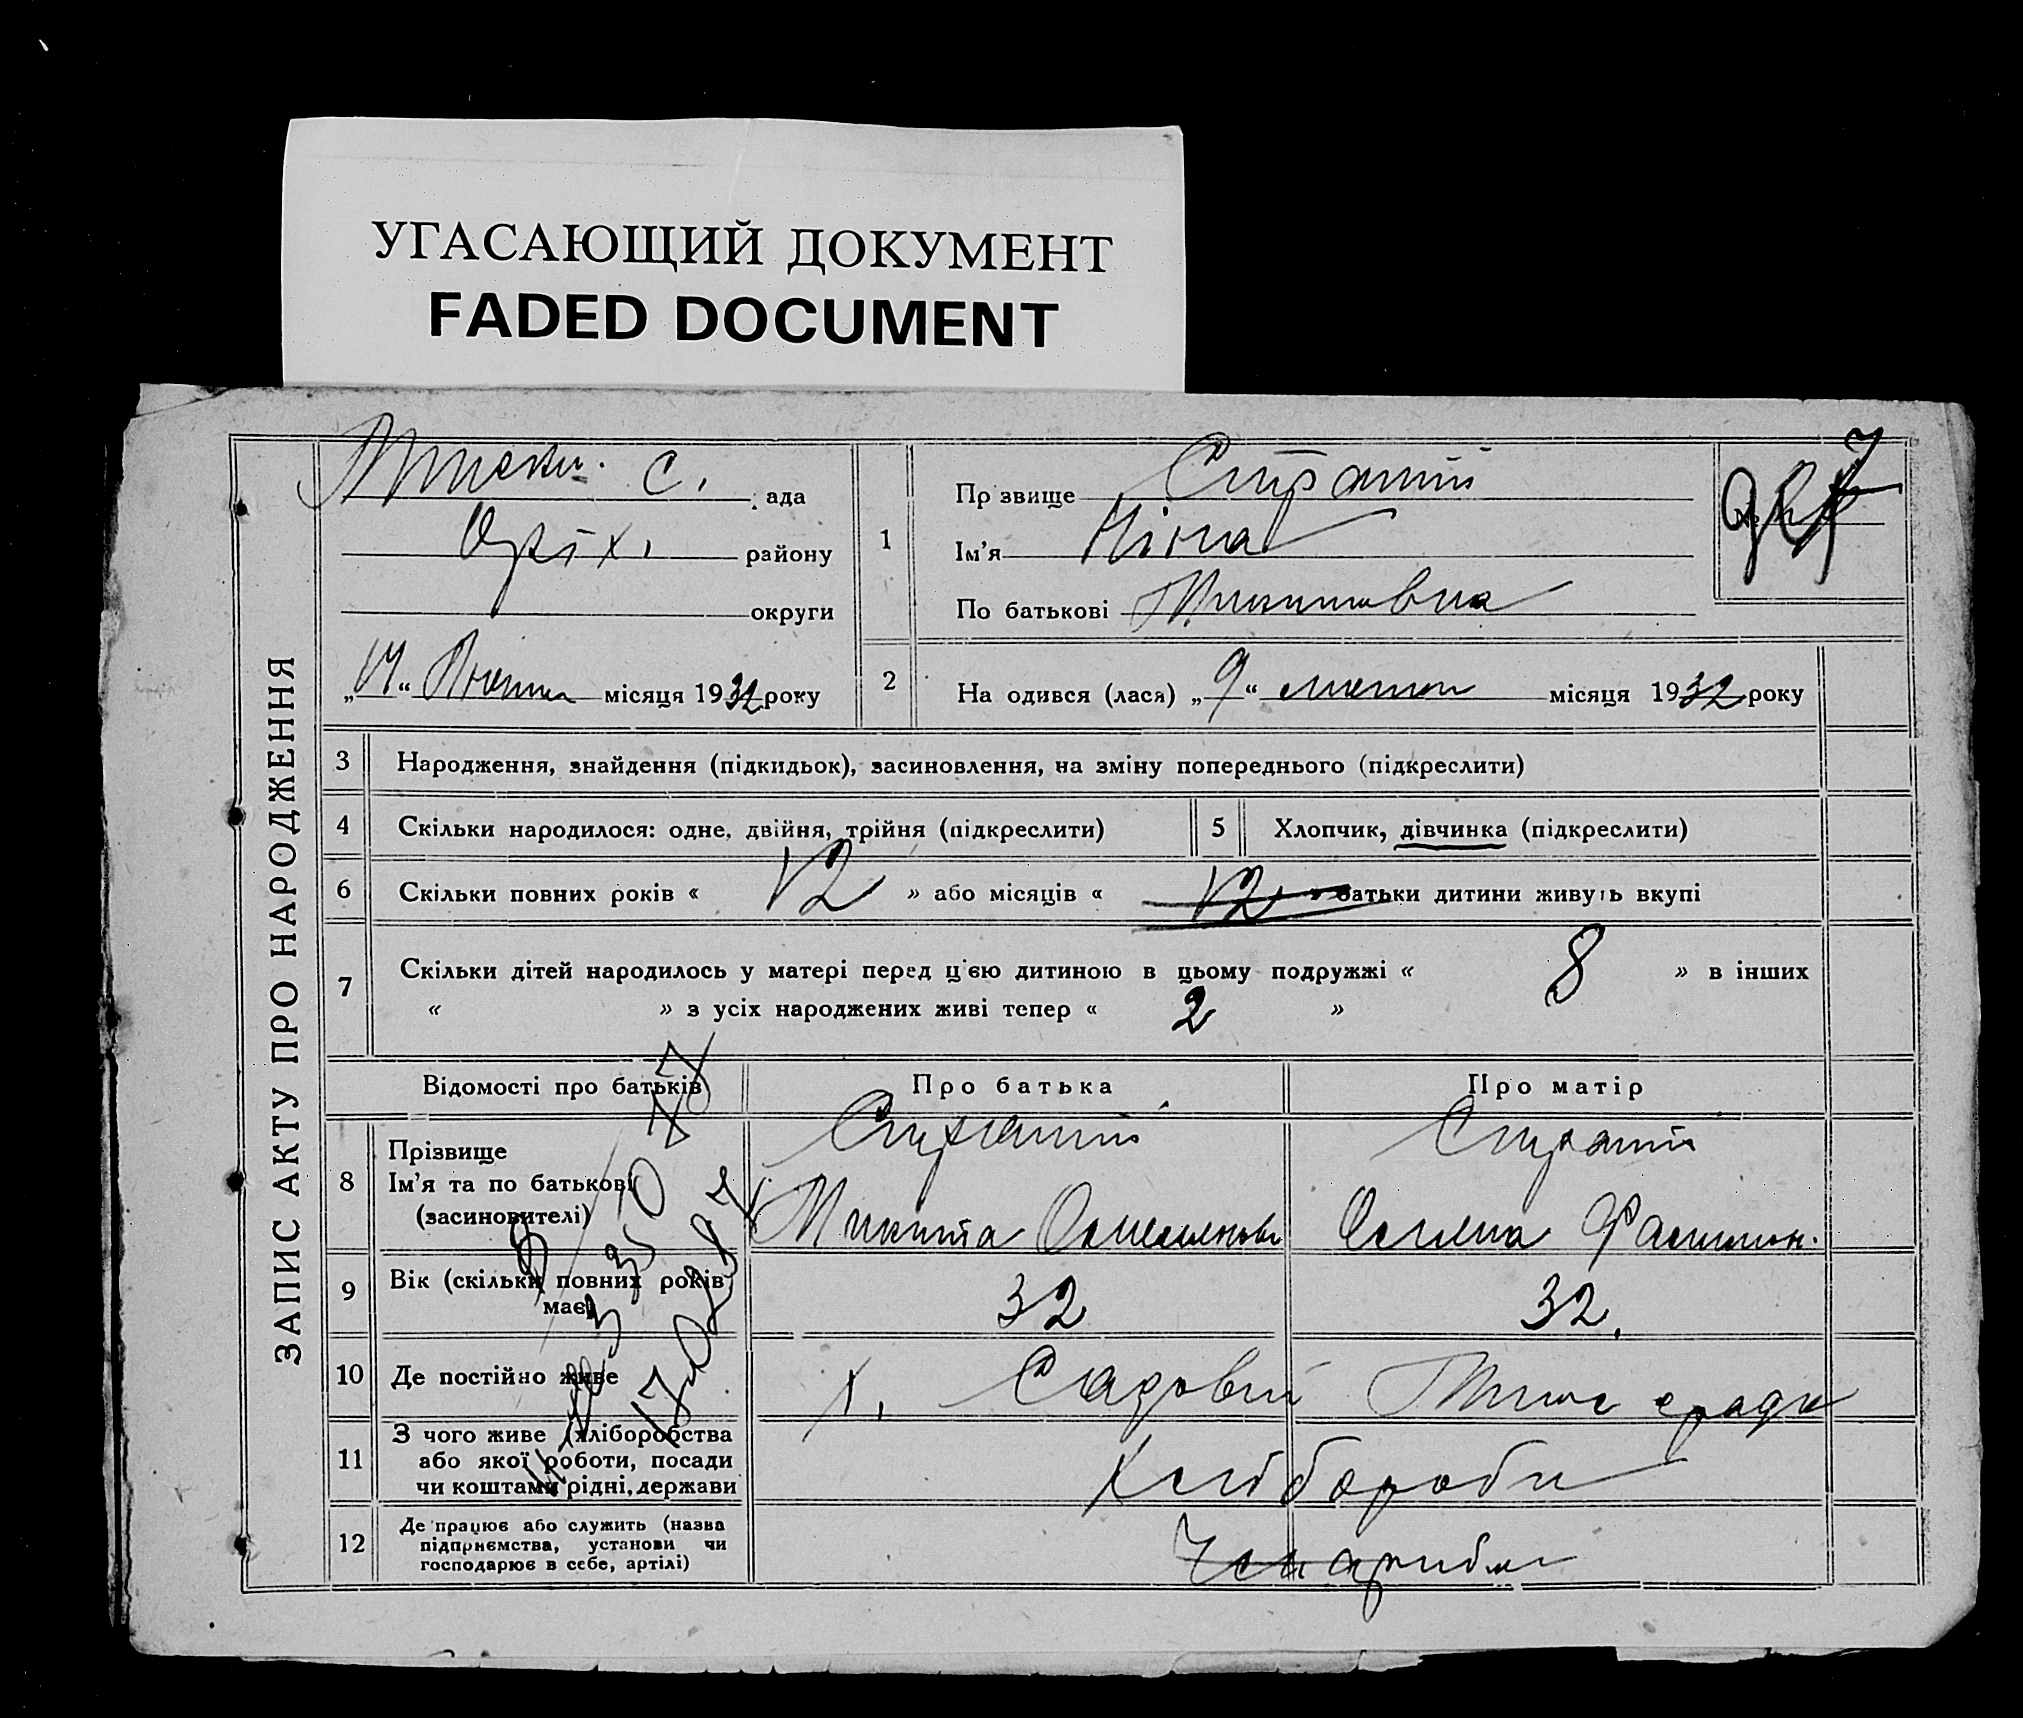 УГАСАЮЩИЙ ДОКУМЕНТ
FADED DOCUMENT
ЗАПИС АКТУ ПРО НАРОДЖЕННЯ
с. ада
Оріх. району
округи
місяця 1932 року
1
Прізвище
Ім'я Ніна
По батькові Микитовна
2
На одився (лася) „9“ лютого місяця 1932 року
3 Народження, знайдення (підкидьок), засиновлення, на зміну попереднього (підкреслити)
4 Скільки народилося: одне, двійня, трійня (підкреслити)
5 Хлопчик, дівчинка (підкреслити)
6 Скільки повних років « 12 » або місяців « 12 » батьки дитини живуть вкупі
7 Скільки дітей народилось у матері перед ц'єю дитиною в цьому подружжі « 8 » в інших
« » з усіх народжених живі тепер « 2 »
Відомості про батьків Про батька Про матір
8 Прізвище
Ім'я та по батькові Микита
(засиновителі)
9 Вік (скільки повних років 32 32.
має)
10 Де постійно живе х. Садовий
11 З чого живе (хліборобства
або якої роботи, посади
чи коштами рідні, держави
Хлібороби
12 Де працює або служить (назва
підприємства, установи чи
господарює в себе, артілі)